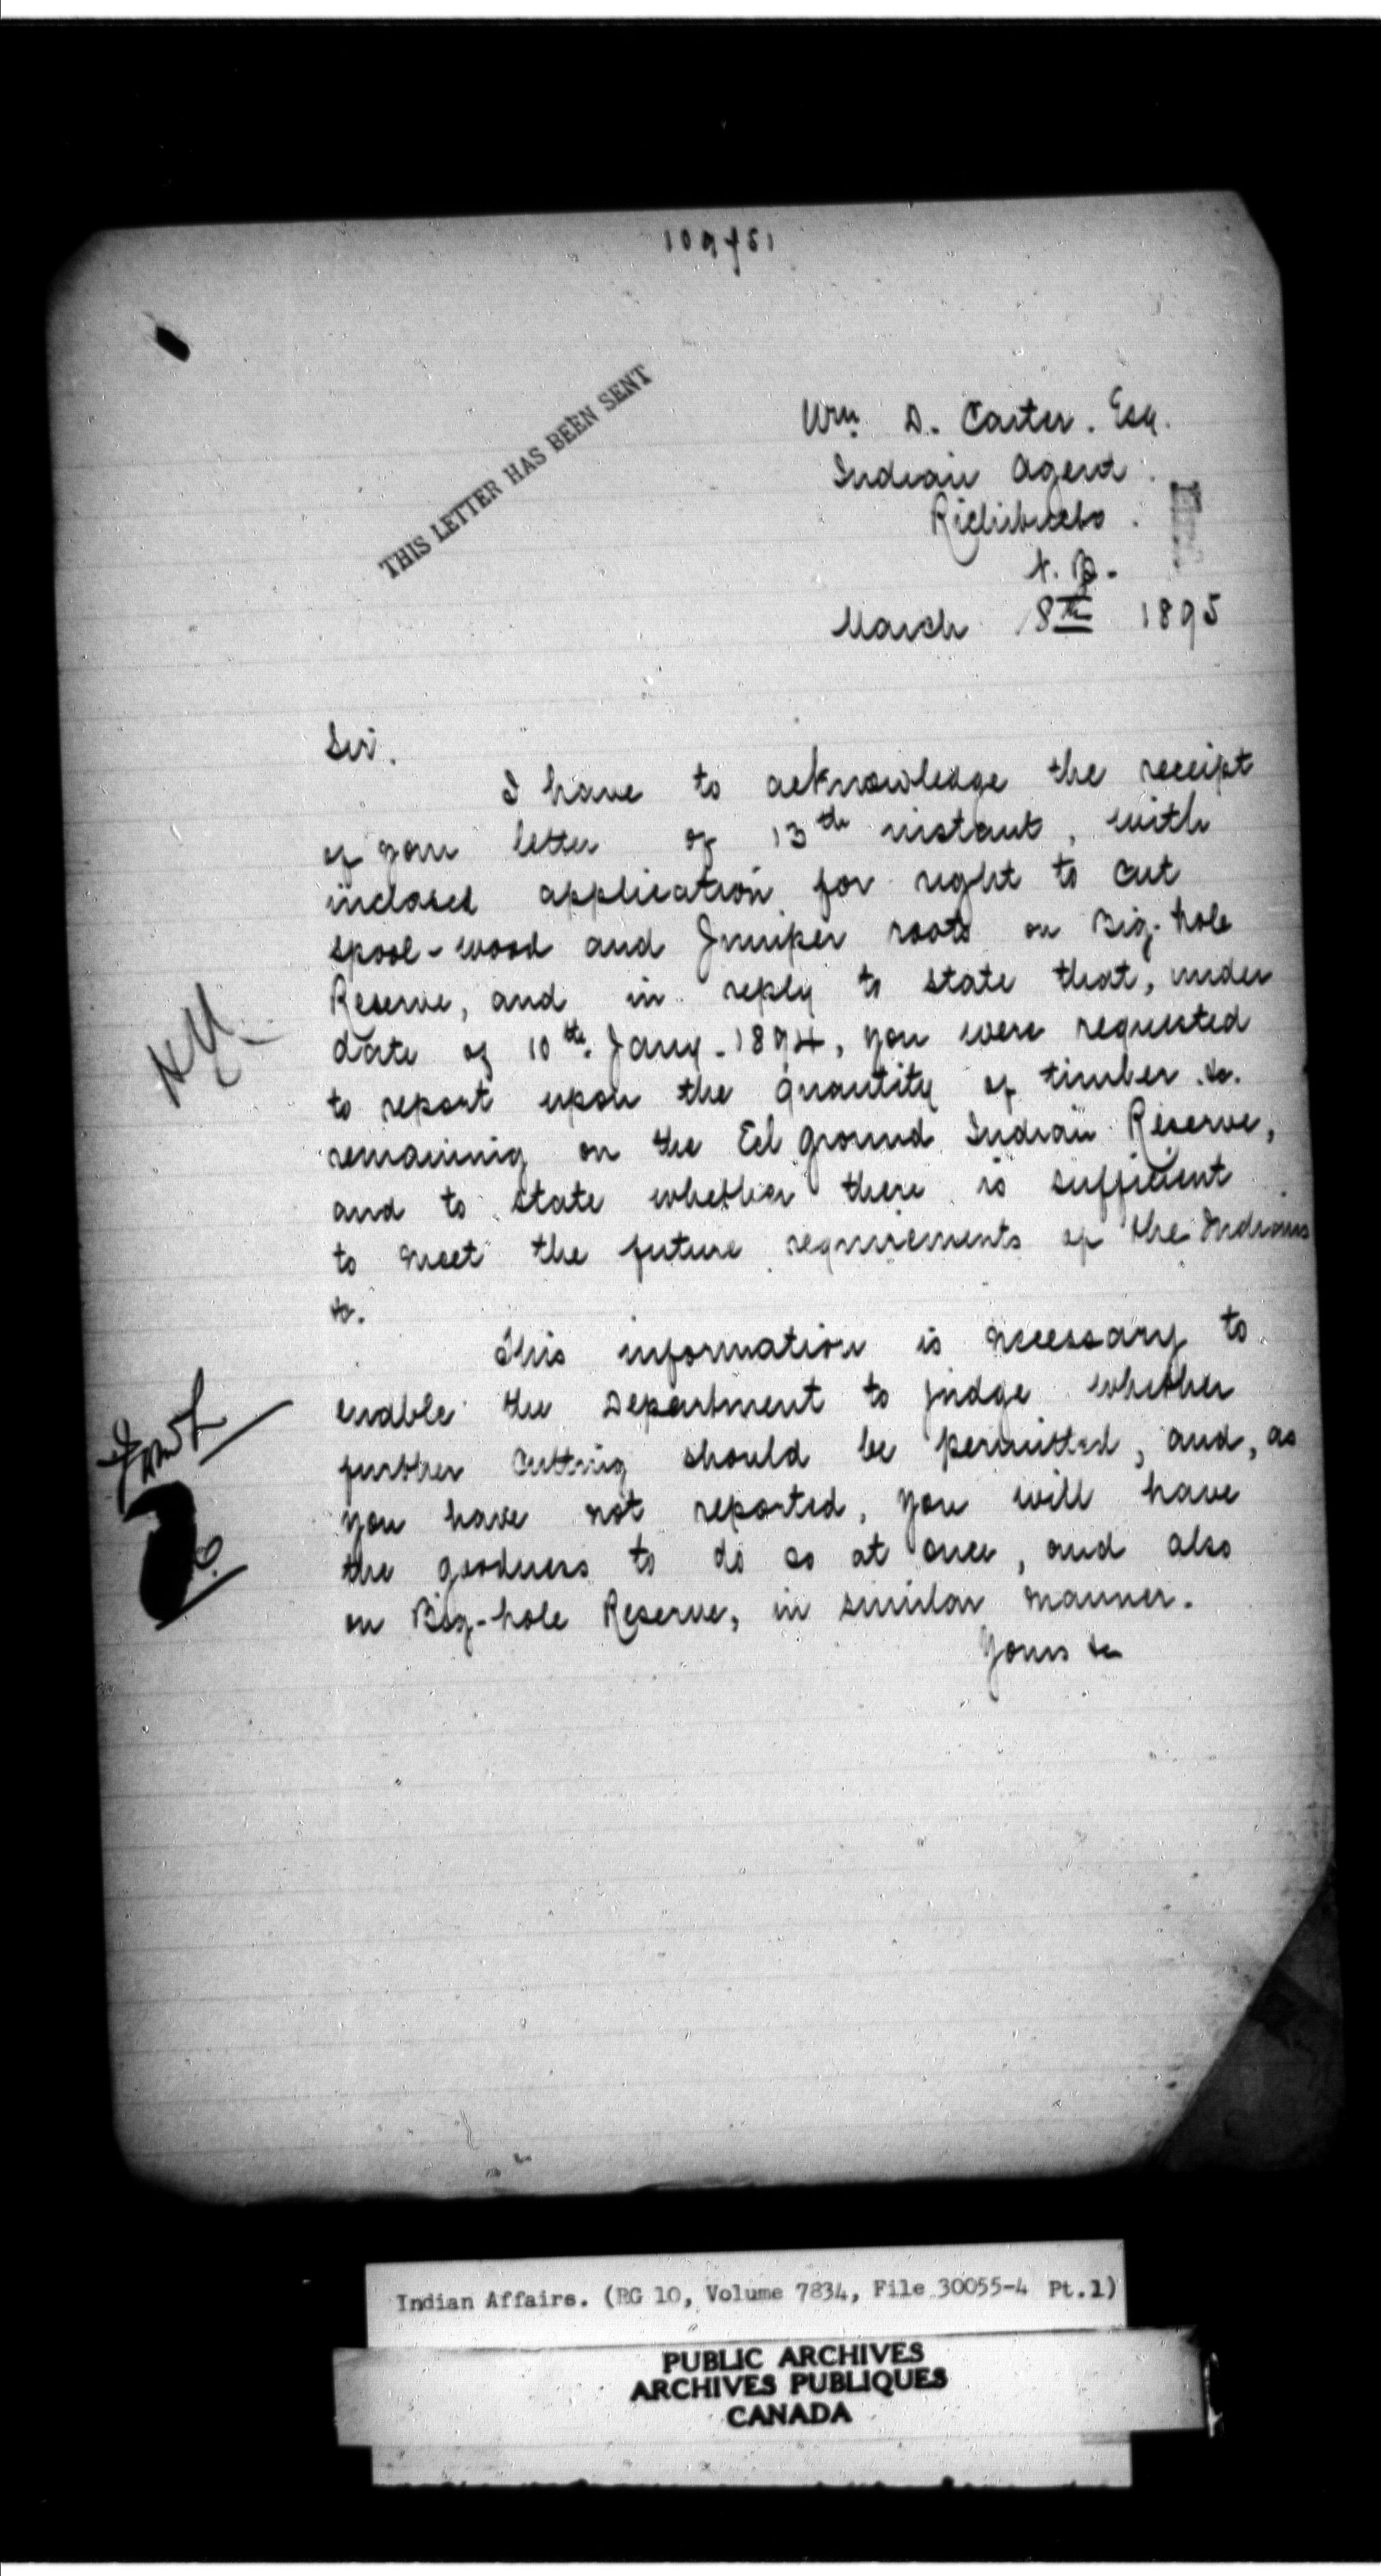 THIS LETTER HAS BEEN SENT
Wm. D. Carter. Esq.
Indian Agent.
Richibucto.
N.B.
March 18th 1895
Sir.
I have to acknowledge the receipt
of your letter of 13th instant, with
inclosed application for right to cut
spool-wood and Juniper roots on Big-hole
Reserve, and in reply to state that, under
date of 10th. Jany. 1894, you were requested
to report upon the quantity of timber &c.
remaining on the Eel Ground Indian Reserve,
and to state whether there is sufficient
to meet the future requirements of the Indians
&c.
This information is necessary to
enable the Department to judge whether
further cutting should be permitted, and, as
you have not reported, you will have
the goodness to do so at once, and also
on Big-hole Reserve, in similar manner.
Yours &c
Indian Affairs. (RG 10, Volume 7834, File 30055-4 Pt.1)
PUBLIC ARCHIVES
ARCHIVES PUBLIQUES
CANADA